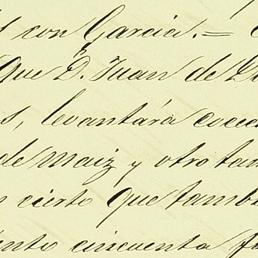 con Garcia.=
Que D. Juan de
levantára
de maiz y otro tan
cierto que tamb
cincuenta